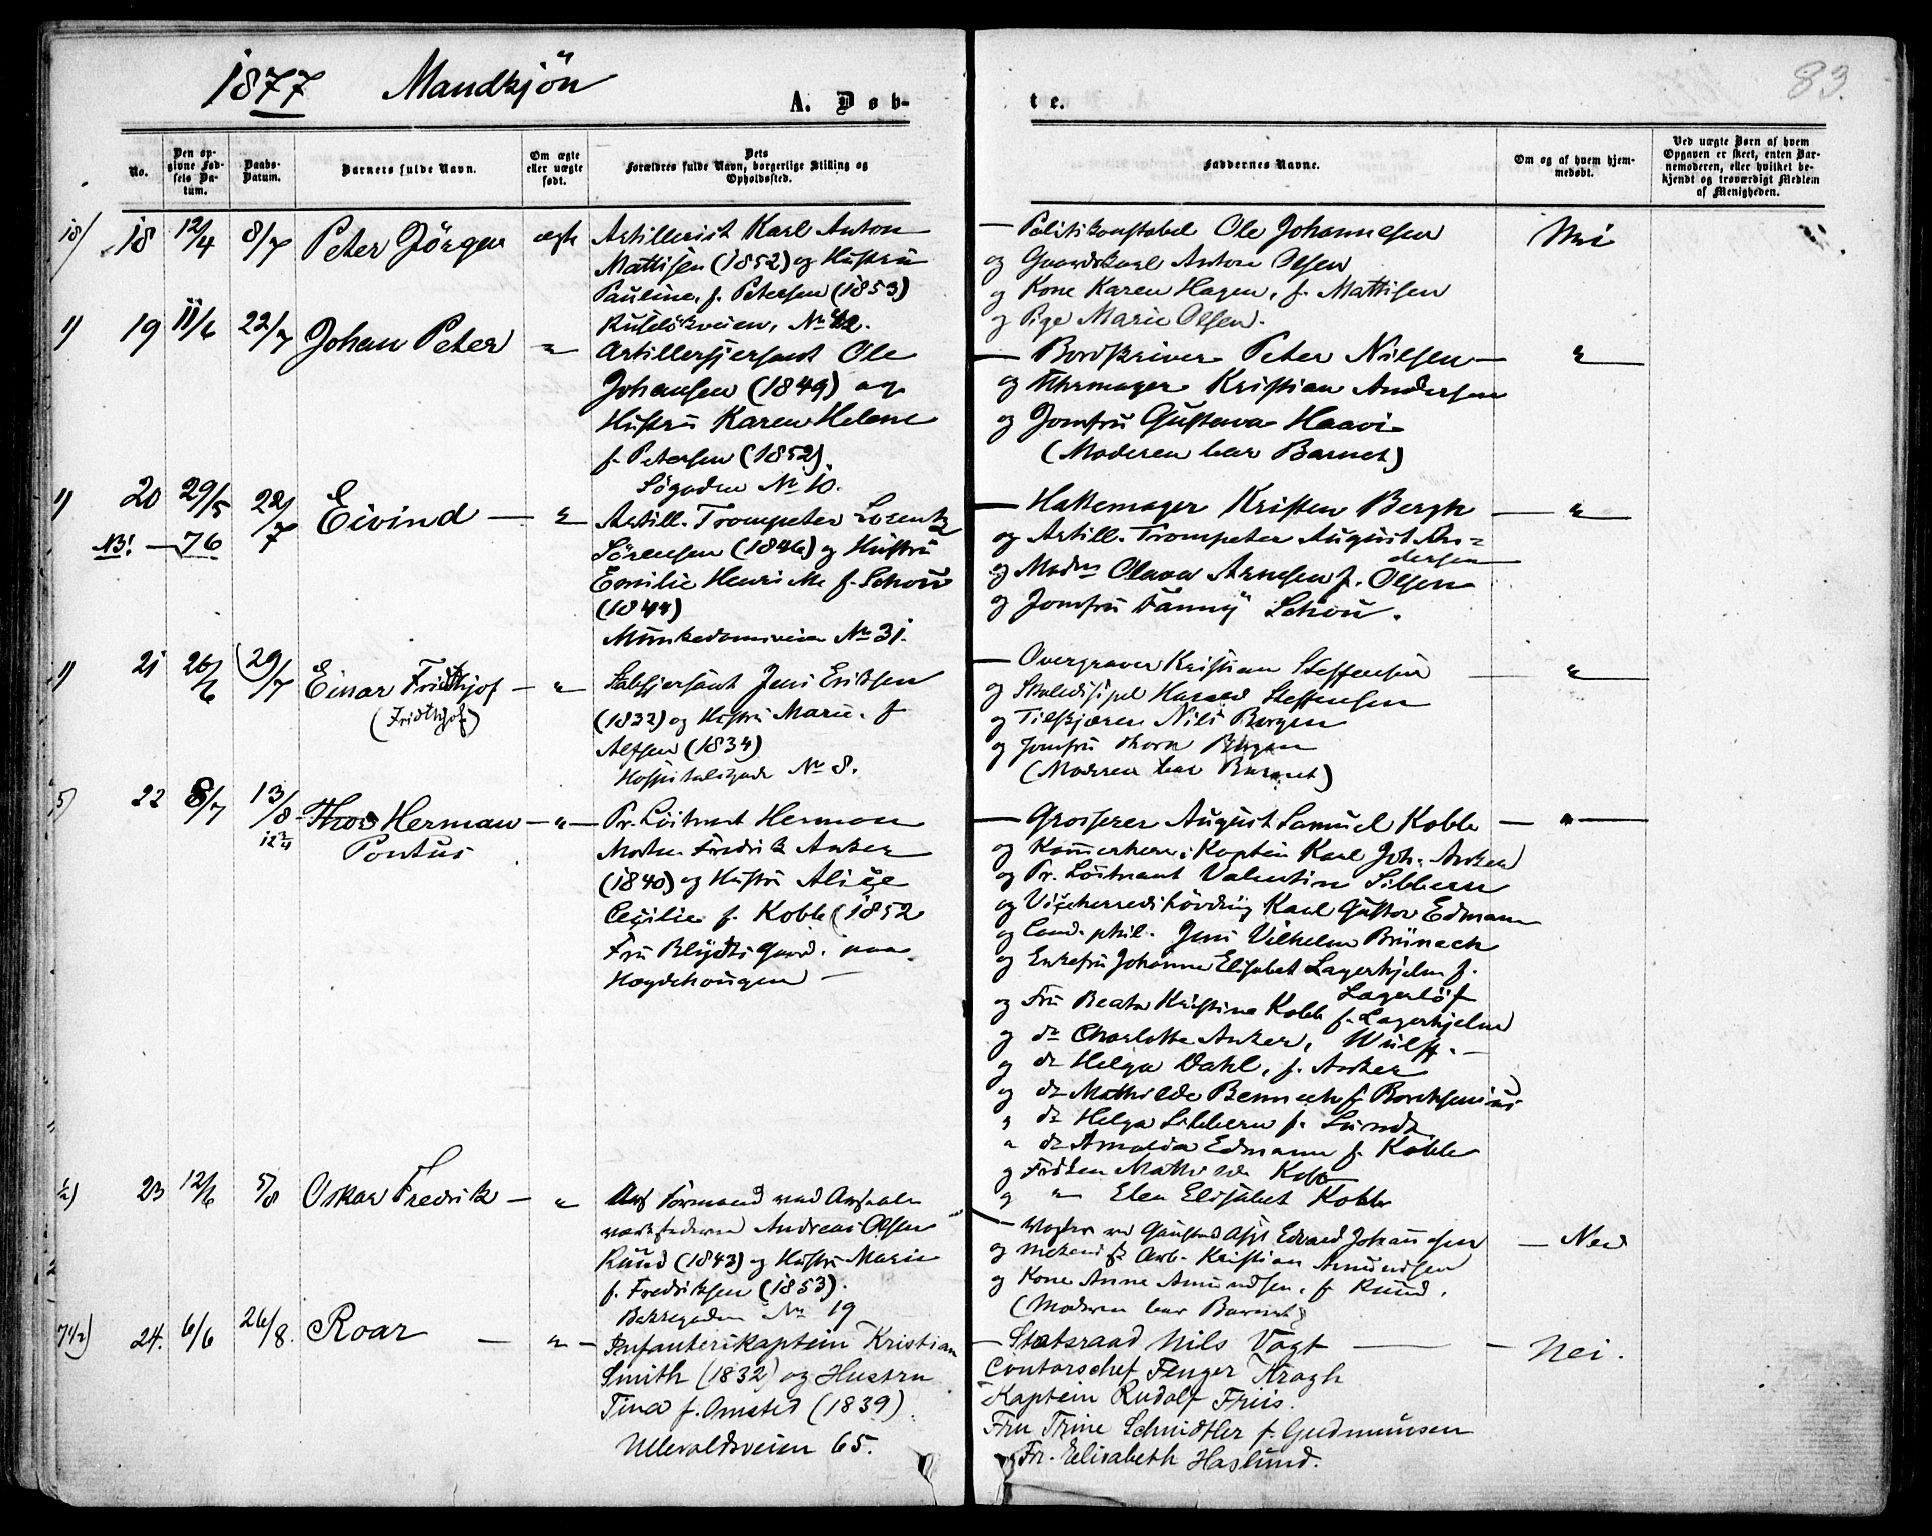 1877 Mandkjön
83.
A. Døb-
te.
No.
Den op-
givne Fød-
sels Da-
tum.
Daabs-
Datum.
Barnets fulde Navn.
Om ægte
eller uægte
født.
Dets
Forældres fulde Navn, borgerlige Stilling og
Opholdssted.
Faddernes Navne.
Om og af hvem hjem-
medøbt.
Ved uægte Børn af hvem
Opgaven er skeet, enten Bar-
nemoderen, eller hvilket be-
kjendt og troværdigt Medlem
af Menigheden.
18 12/4 8/7 Peter Jörgen ægte
Artillerist Karl Anton
Mattisen (1852) og Hustru
Pauline, f. Petersen (1853)
— Politikonstabel Ole Johannesen
og Gaardskarl Anton Olsen
og Kone Karen Hagen, f. Mattisen
og Pige Marie Olsen.
Nei
19 11/6 22/7 Johan Peter "
Artillersjersant Ole
Johansen (1849) og
Hustru Karen Helene
f. Petersen (1852).
Sögaden No 10.
— Bordskriver Peter Nilsen —
og Uhrmager Kristian Andersen
og Jomfru Gustava Haavi
(Moderen bar Barnet)
"
20 29/5 22/7 Eivind — "
NB! — 76
Artill. Trompeter Lorentz
Sörensen (1846) og Hustru
Emilie Henrikke f. Schou
(1844)
Munkedamsveien No 31.
— Hattemager Kristen Bergh — "
og Artill. Trompeter August An=
dersen
og Madm Olava Arnesen f. Olsen
og Jomfru Fanny Schou.
21 26/6 (29/7 Einar Fridthjof — "
(Fridthjof)
Stabsjersant Jens Eriksen
(1832) og Hustru Marie f.
Alfsen (1834)
Hospitalsgade No 8.
— Overgraver Kristian Steffensen — "
og Skoledisipel Harald Steffensen
og Tilskjærer Nils Bergen
og Jomfru Thora Bergen
(Moderen bar Barnet)
22 8/7 13/8 Thor Herman — " —
Pontus
Pr. Löitnant Herman
Morten Fredrik Anker
(1840) og Hustru Alice
Cecilie f. Kobb (1852
Fru Blydts Gaard. paa
Hægdehougen —
— Grosserer August Samuel Kobb — " —
og Kammerherre, Kaptein Karl Joh. Anker
og Pr. Löitnant Valentin Sibbern
og Viceherredshövding Karl Gustav Edmann
og Cand. phil. Jens Vilhelm Bünech
og Enkefru Johanna Elisabet Lagerhjelm f.
Lagerlöf
og Fru Beata Kristina Kobb f. Lagerhjelm
og do Charlotte Anker, Wulff. —
og do Helga Dahl, f. Anker
og do Mathilde Bennech f. Borchsenius
" do Helga Sibbern f. Lundt
" do Amalda Edmann f. Kobb
og Fröken Mathilde Kobb
og " Elen Elisabet Kobb
23 12/6 5/8 Oskar Fredrik — "
Formand ved
Andreas Olsen
Ruud (1843) og Hustru Marie
f. Fredriksen (1853).
Bakkegaden No 19
— Vogter ved Gaustad Asyl Edvard Johannesen — Nei
og Mekanisk Arb. Kristian Amundsen
og Kone Anne Amundsen, f. Ruud.
(Moderen bar Barnet)
24. 6/6 26/8. Roar — " —
Infanterikaptein Kristian
Smith (1832) og Hustru
Tina f. Omsted (1839).
Ullevoldsveien 65.
— Statsraad Nils Vogt — Nei.
Contorschef Fenger Kragh
Kaptein Rudolf Friis.
Fru Trine Schmidtler f. Gudmunsen
og Fr. Elisabeth Haslund.